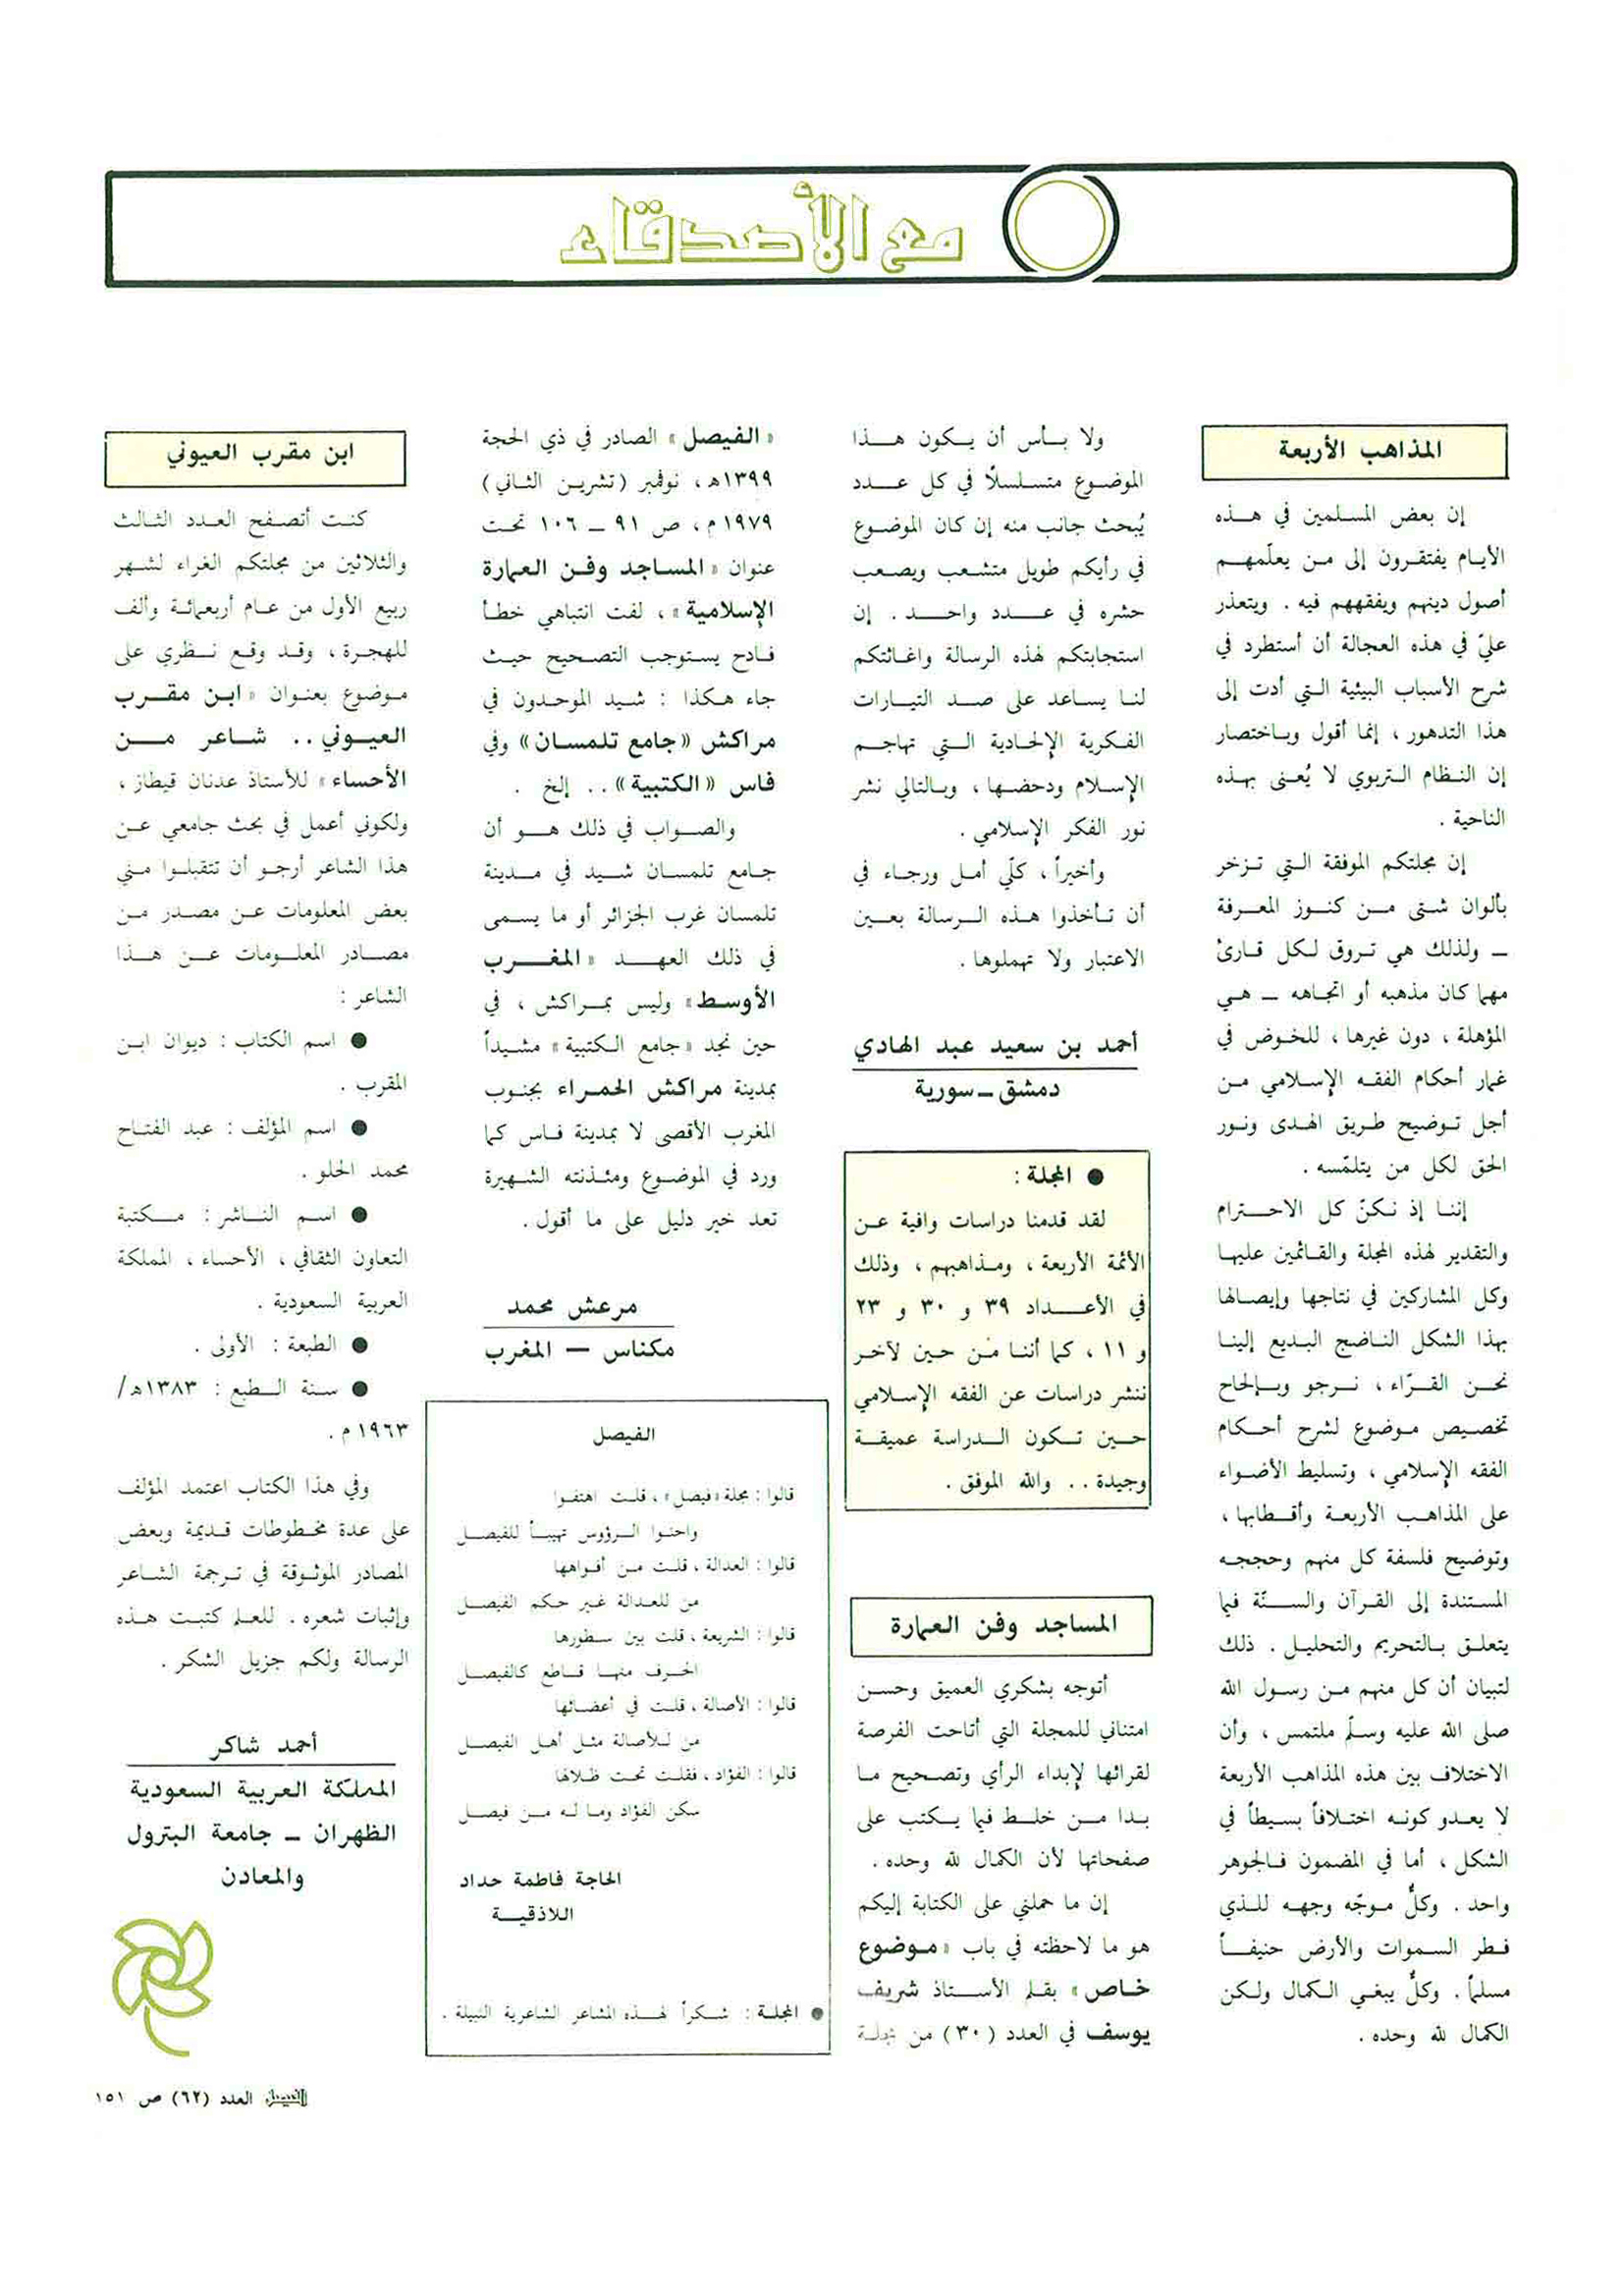 مع الأصدقاء
المذاهب الأربعة
إن بعض المسلمين في هذه
الأيام يفتقرون إلى من يعلّمهم
أصول دينهم ويفقههم فيه . ويتعذر
عليّ في هذه العجالة أن أستطرد في
شرح الأسباب البيئية التي أدت إلى
هذا التدهور ، إنما أقول وباختصار
إن النظام التربوي لا يُعنى بهذه
الناحية .
إن مجلتكم الموفقة التي تزخر
بألوان شتى من كنوز المعرفة
ــ ولذلك هي تروق لكل قارئ
مهما كان مذهبه أو اتجاهه ــ هي
المؤهلة ، دون غيرها ، للخوض في
غمار أحكام الفقه الإسلامي من
أجل توضيح طريق الهدى ونور
الحق لكل من يتلمّسه .
إننا إذ نكنّ كل الاحترام
والتقدير لهذه المجلة والقائمين عليها
وكل المشاركين في نتاجها وإيصالها
بهذا الشكل الناضج البديع إلينا
نحن القرّاء ، نرجو وبإلحاح
تخصيص موضوع لشرح أحكام
الفقه الإسلامي ، وتسليط الأضواء
على المذاهب الأربعة وأقطابها ،
وتوضيح فلسفة كل منهم وحججه
المستندة إلى القرآن والسنّة فيما
يتعلق بالتحريم والتحليل . ذلك
لتبيان أن كل منهم من رسول الله
صلى الله عليه وسلّم ملتمس ، وأن
الاختلاف بين هذه المذاهب الأربعة
لا يعدو كونه اختلافاً بسيطاً في
الشكل ، أما في المضمون فالجوهر
واحد . وكلٌ موجّه وجهه للذي
فطر السموات والأرض حنيفاً
مسلما . وكلٌ يبغي الكمال ولكن
الكمال لله وحده .
ولا بأس أن يكون هذا
الموضوع متسلسلاً في كل عدد
يُبحث جانب منه إن كان الموضوع
في رأيكم طويل متشعب ويصعب
حشره في عدد واحد . إن
استجابتكم لهذه الرسالة واغاثتكم
لنا يساعد على صد التيارات
الفكرية الإلحادية التي تهاجم
الإسلام ودحضها ، وبالتالي نشر
نور الفكر الإسلامي .
وأخيراً ، كلّي أمل ورجاء في
أن تأخذوا هذه الرسالة بعين
الاعتبار ولا تهملوها .
أحمد بن سعيد عبد الهادي
دمشق ــ سورية
● المجلة :
لقد قدمنا دراسات وافية عن
الأئمة الأربعة ، ومذاهبهم ، وذلك
في الأعداد ٣٩ و ٣٠ و ٢٣
و ١١ ، كما أننا من حين لآخر
ننشر دراسات عن الفقه الإسلامي
حين تكون الدراسة عميقة
وجيدة .. والله الموفق .
المساجد وفن العمارة
أتوجه بشكري العميق وحسن
امتناني للمجلة التي أتاحت الفرصة
لقرائها لإبداء الرأي وتصحيح ما
بدا من خلط فيما يكتب على
صفحاتها لأن الكمال لله وحده .
إن ما حملني على الكتابة إليكم
هو ما لاحظته في باب « موضوع
خاص » بقلم الأستاذ شريف
يوسف في العدد (٣٠) من مجلة
« الفيصل » الصادر في ذي الحجة
١٣٩٩هـ ، نوفمبر (تشرين الثاني)
١٩٧٩م ، ص ٩١ ــ ١٠٦ تحت
عنوان « المساجد وفن العمارة
الإسلامية » ، لفت انتباهي خطأ
فادح يستوجب التصحيح حيث
جاء هكذا : شيد الموحدون في
مراكش «جامع تلمسان» وفي
فاس «الكتبية» .. إلخ .
والصواب في ذلك هو أن
جامع تلمسان شيد في مدينة
تلمسان غرب الجزائر أو ما يسمى
في ذلك العهد « المغرب
الأوسط » وليس بمراكش ، في
حين نجد «جامع الكتبية» مشيداً
بمدينة مراكش الحمراء بجنوب
المغرب الأقصى لا بمدينة فاس كما
ورد في الموضوع ومئذنته الشهيرة
تعد خير دليل على ما أقول .
مرعش محمد
مكناس ــ المغرب
الفيصل
قالوا : مجلة «فيصل» ، قلت اهتفوا
واحنوا الرؤوس تهيباً للفيصل
قالوا : العدالة ، قلت من أفواهها
من للعدالة غير حكم الفيصل
قالوا : الشريعة ، قلت بين سطورها
الحرف منها قاطع كالفيصل
قالوا : الأصالة ، قلت في أعضائها
من للأصالة مثل أهل الفيصل
قالوا : الفؤاد ، فقلت تحت ظلالها
سكن الفؤاد وما له من فيصل
الحاجة فاطمة حداد
اللاذقية
● المجلة : شكراً لهذه المشاعر الشاعرية النبيلة .
ابن مقرب العيوني
كنت أتصفح العدد الثالث
والثلاثين من مجلتكم الغراء لشهر
ربيع الأول من عام أربعمائة وألف
للهجرة ، وقد وقع نظري على
موضوع بعنوان « ابن مقرب
العيوني .. شاعر من
الأحساء » للأستاذ عدنان قيطاز ،
ولكوني أعمل في بحث جامعي عن
هذا الشاعر أرجو أن تتقبلوا مني
بعض المعلومات عن مصدر من
مصادر المعلومات عن هذا
الشاعر :
● اسم الكتاب : ديوان ابن
المقرب .
● اسم المؤلف : عبد الفتاح
محمد الحلو .
● اسم الناشر : مكتبة
التعاون الثقافي ، الأحساء ، المملكة
العربية السعودية .
● الطبعة : الأولى .
● سنة الطبع : ١٣٨٣هـ/
١٩٦٣م .
وفي هذا الكتاب اعتمد المؤلف
على عدة مخطوطات قديمة وبعض
المصادر الموثوقة في ترجمة الشاعر
وإثبات شعره . للعلم كتبت هذه
الرسالة ولكم جزيل الشكر .
أحمد شاكر
المملكة العربية السعودية
الظهران ــ جامعة البترول
والمعادن
الفيصل العدد (٦٢) ص ١٥١